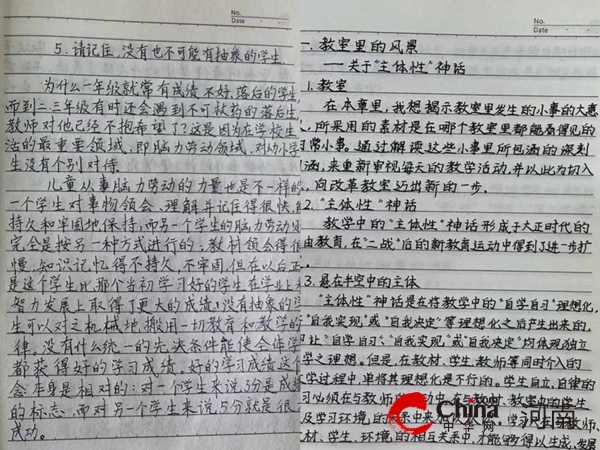 No.
Date
5. 请记住,没有也不可能有抽象的学生
为什么一年级就常有成绩不好、落后的学生
而到二、三年级有时还会遇到不可救药的落后生
教师对他已经不抱希望了?这是因为在学校生
活的最重要领域,即脑力劳动领域,对幼小学
生没有个别对待。
儿童从事脑力劳动的力量也是不一样的
一个学生对事物领会、理解并记住得很快,
持久和牢固地保持,而另一个学生的脑力劳动
完全是按另一种方式进行的:教材领会得
慢,知识记忆得不持久、不牢固,但在以后
是这个学生比那个当初学习好的学生在学业上
智力发展上取得了更大的成绩!没有抽象的学
生可以对之机械地搬用一切教育和教学的
律。没有什么统一的先决条件能使全体学
都获得好的学习成绩。好的学习成绩这个
念本身是相对的:对一个学生来说,3分是成
的标志,而对另一个学生来说,5分就是很
成功。
No.
Date
一. 教室里的风景
——关于“主体性”神话
1. 教室
在本章里,我想揭示教室里发生的小事的大惠
,所采用的素材是在哪个教室里都能看得见的
常小事。通过解读这些小事里所包涵的深刻
涵,来重新审视每天的教学活动,并以此为切入
,向改革教室迈出新的一步。
2. “主体性”神话
教学中的“主体性”神话形成于大正时代的
由教育,在“二战”后的新教育运动中得到了进一步扩
3. 悬在半空中的主体
“主体性”神话是在将教学中的“自学自习”理想化,
“自我实现”或“自我决定”等理想化之后产生出来的,
让“自学自习”、“自我实现”或“自我决定”均体现独立
学之理想。但是,在教材、学生、教师等同时介入的
学过程中,单将其理想化是不行的。学生自立、自律的
习必须在与教师的互动中,在与教材、教室中的学生
及学习环境的关系中来加以
材、学生、环境的相互关系中,才能够得以生成、发展
China
中华网
河南